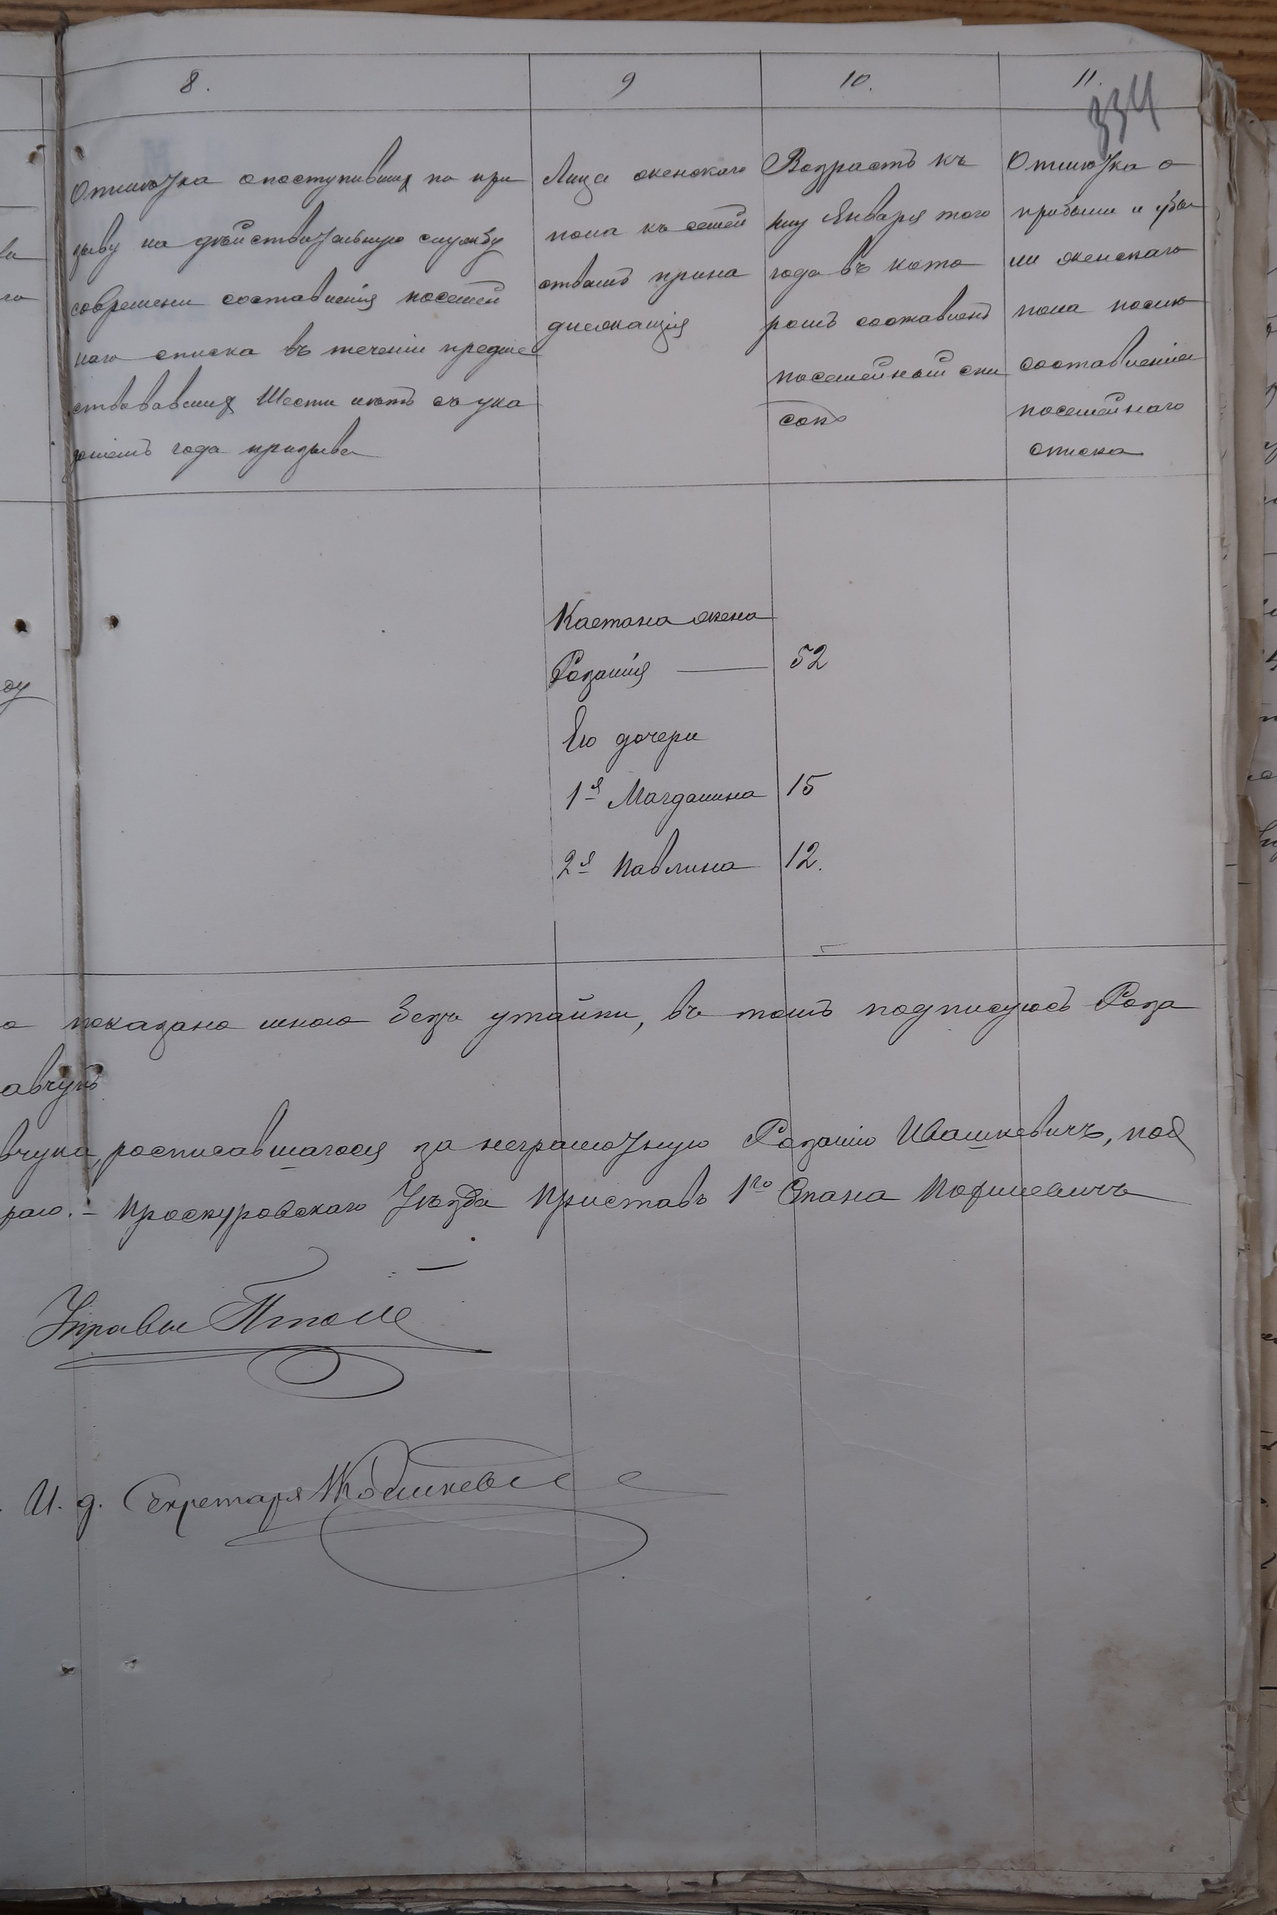 8.
9
10.
11.
334
Отмѣтка опоступившихъ по при
зыву на дѣйствительную службу
современи составленія посемей
наго списка въ теченіи предше
ствовавшихъ Шести лѣтъ съ ука
заніемъ года призыва
Лица женскаго
пола къ семей
ствамъ прина
длежащія
Возрастъ къ
му Января того
года въ кото
ромъ составленъ
посемейный спи
сокъ
Отмѣтка о
прибыли и убы
ли женскаго
пола послѣ
составленія
посемейнаго
списка
Каетана жена
Розалія — 52
Его дочери
1я Магдалина 15
2я Павлина 12.
о показано мною безъ утайки, въ томъ подписуюсь Роза
авчукъ
вчука, росписавшагося за неграмотную Розалію Ивашкевичъ, под
раю. – Проскуровскаго Уѣзда Приставъ 1го Стана
Управы
И. д. Секретаря